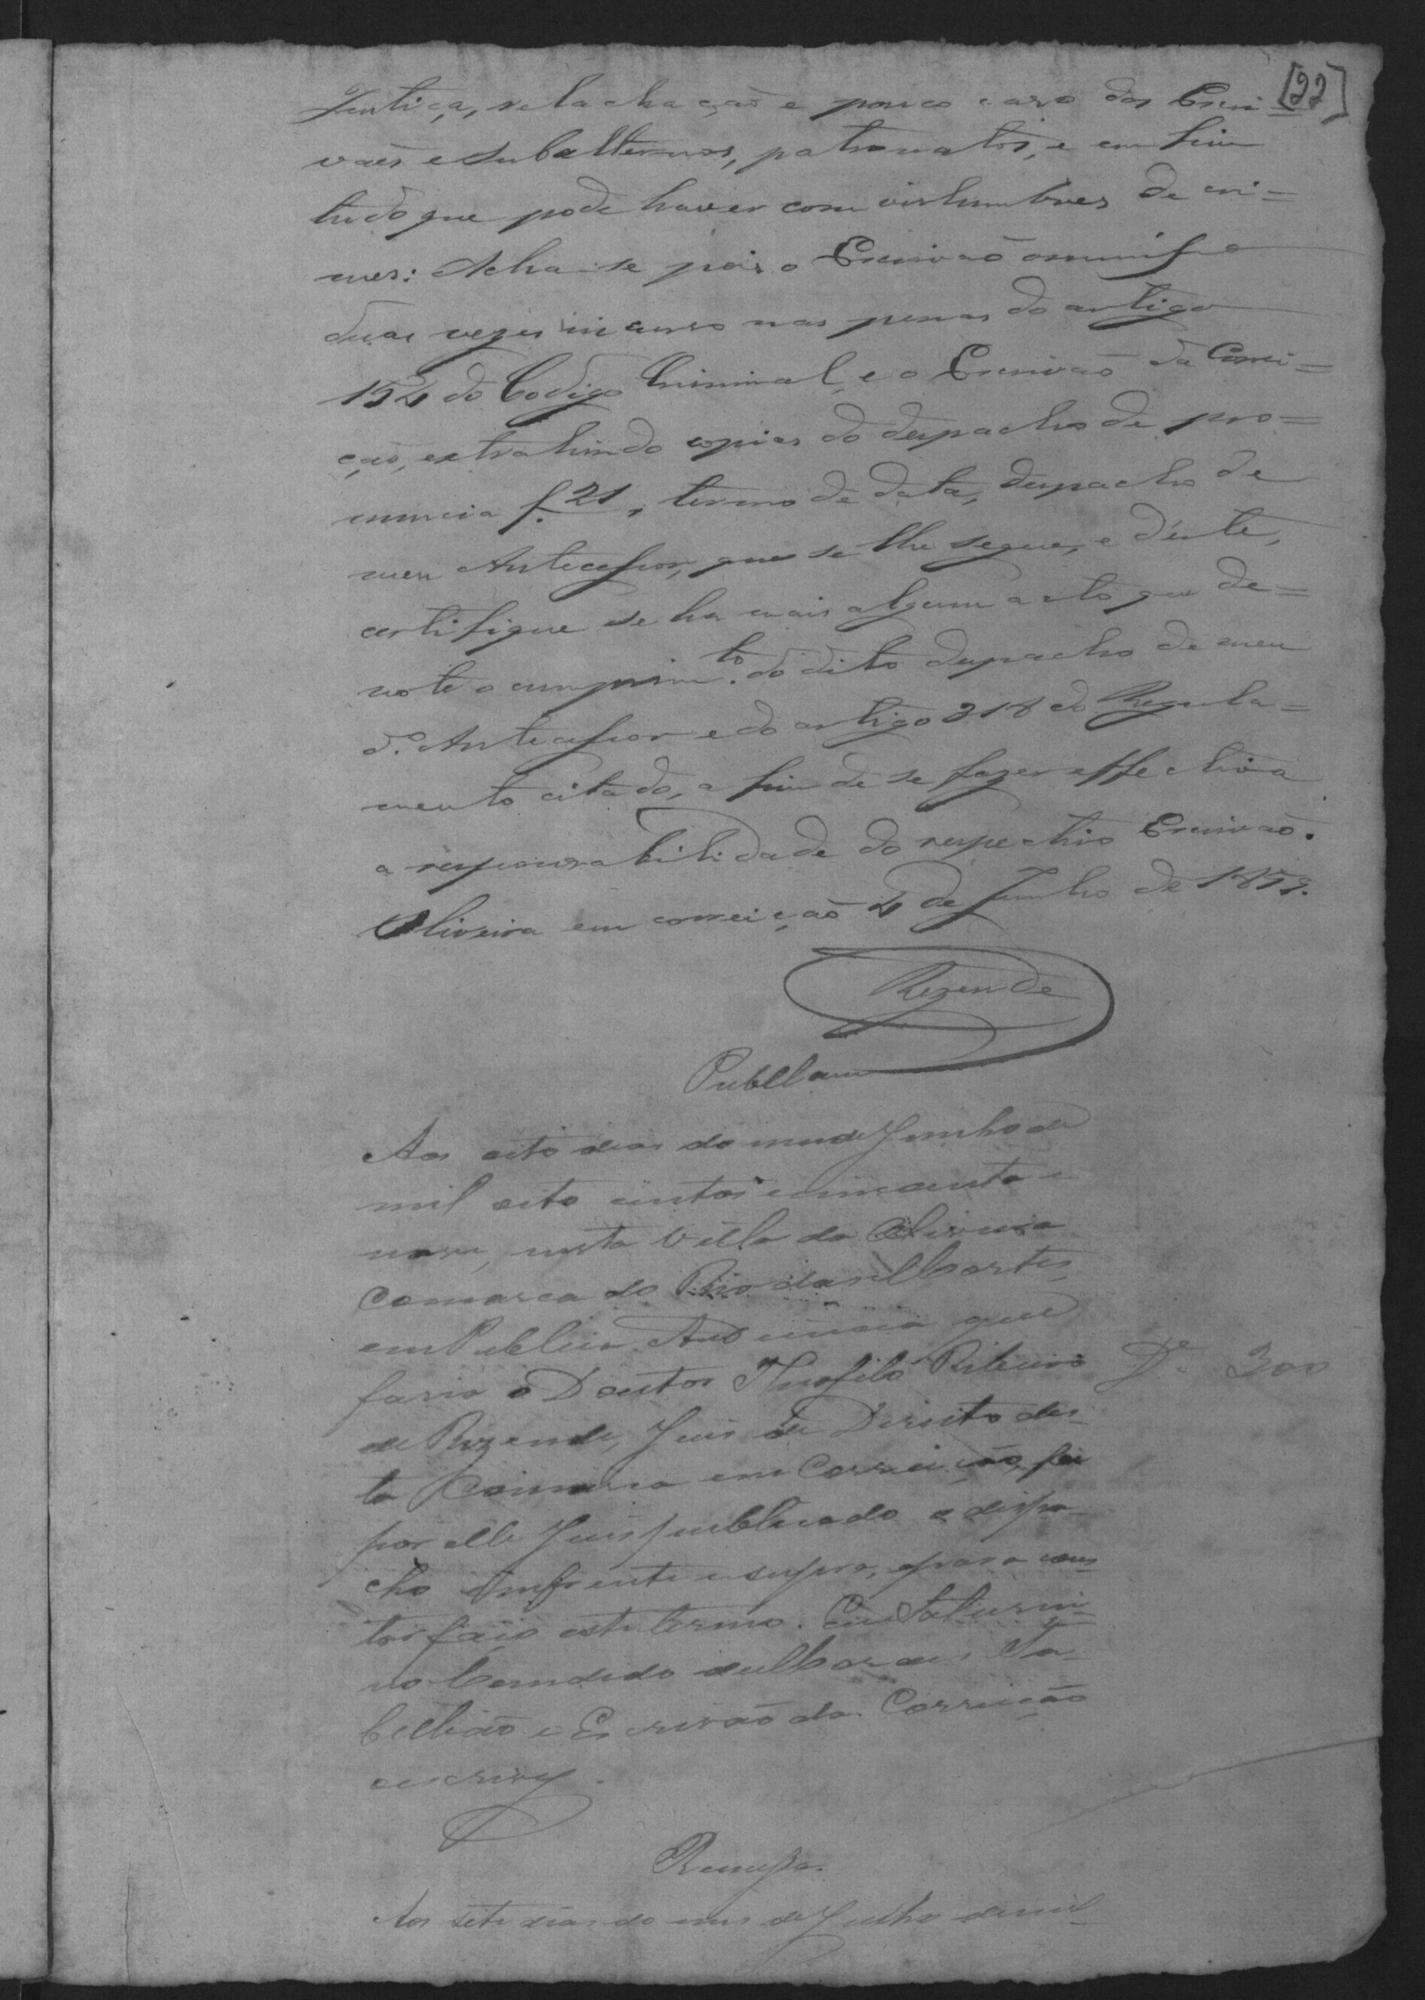 [22]
Justiça, relachação e pouco caso dos Escri=
vães e subalternos, patronatos, e em fim
tudo que pode haver com vislumbres de cri=
mes: Acha-se pois o Escrivão omisso
duas vezes incurso nas penas do artigo
154 do Codigo Criminal, e o Escrivão da Correi=
ção, extrahindo copias do despacho de pro=
nuncia f. 21, termo de data, despacho de
meu Antecessor, que se lhe segue, e d'éste,
certifique se ha mais algum acto que de=
note o cumprim.to do dito despacho de meu
d.o Antecessor e do artigo 318 do Regula=
mento citado, a fim de se fazer effectiva
a responsabilidade do respectivo Escrivão.
Oliveira em correição 4 de Junho de 1859.
Rezende
Publicam
Aos oito dias do mes de Junho de
mil oito centos e cincoenta e
nove, nesta Villa da Oliveira
Comarca do Rio das Mortes,
em Publica Audiencia que
fasia o Doutor Theofilo Ribeiro
D.e 300
de Rezende, Juis de Direito des-
ta Comarca em Correição, foi
por elle Juis publicado o despa-
cho em frente e supra, e para cons-
tar faço este termo. Eu Saturni-
no Candido de Moraes Ta-
bellião e Escrivão da Correição
o escrevy.
Remessa.
Aos sete dias do mes de Julho de mil